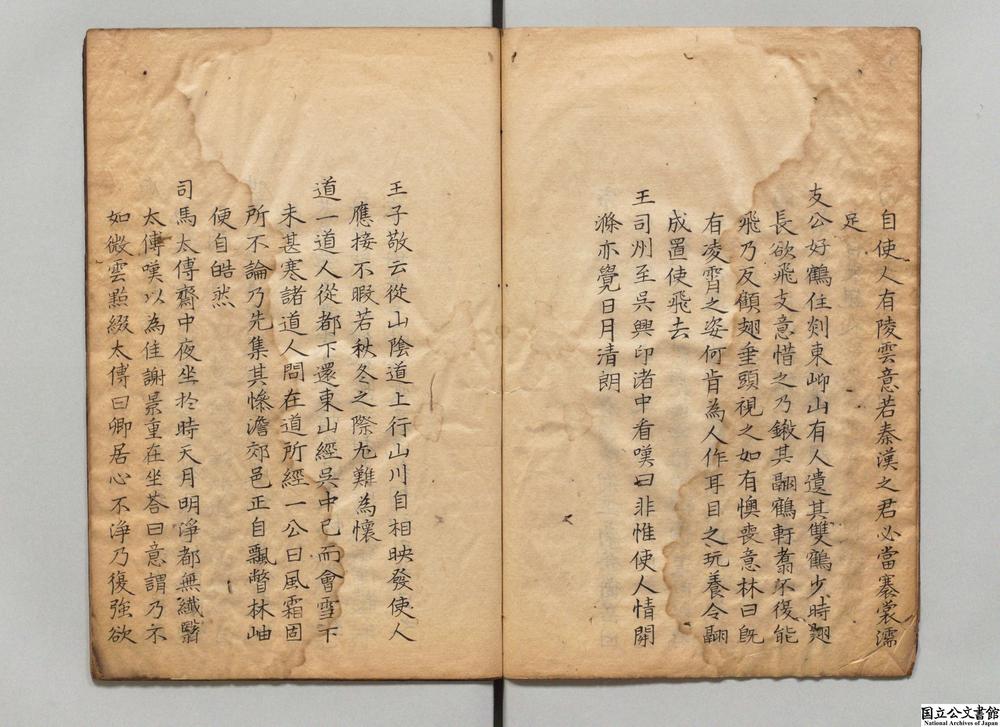 自使人有陵雲意若秦漢之君必當褰裳濡
足
支公好鶴住剡東岇山有人遺其雙鶴少時翅
長欲飛支意惜之乃鎩其翮鶴軒翥不復能
飛乃反顧翅垂頭視之如有懊喪意林曰既
有凌霄之姿何肯為人作耳目之玩養令翮
成置使飛去
王司州至吳興印渚中看嘆曰非惟使人情開
滌亦覺日月清朗
王子敬云從山陰道上行山川自相映發使人
應接不暇若秋冬之際尤難為懷
道一道人從都下還東山經吳中已而會雪下
未甚寒諸道人問在道所經一公曰風霜固
所不論乃先集其慘澹郊邑正自飄瞥林岫
便自皓然
司馬太傅齋中夜坐於時天月明淨都無纖翳
太傅嘆以為佳謝景重在坐答曰意謂乃不
如微雲點綴太傅曰卿居心不淨乃復強欲
国立公文書館
National Archives of Japan